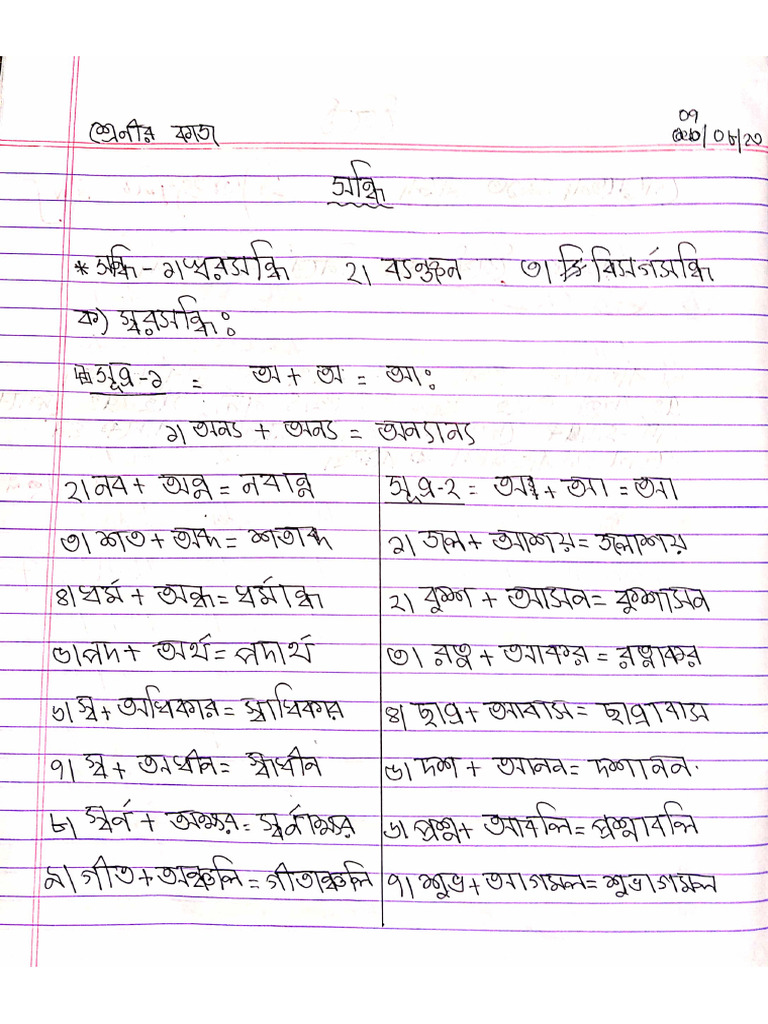 শ্রেনীর কাজ
০৭
/০৮/২০
সন্ধি
* সন্ধি - ১। স্বরসন্ধি ২। ব্যঞ্জন ৩। বিসর্গসন্ধি
ক) স্বরসন্ধি :
সূত্র-১ = অ + অ = আ :
১। অন্য + অন্য = অন্যান্য
২। নব + অন্ন = নবান্ন
৩। শত + অব্দ = শতাব্দ
৪। ধর্ম + অন্ধ = ধর্মান্ধ
৫। পদ + অর্থ = পদার্থ
৬। স্ব + অধিকার = স্বাধিকার
৭। স্ব + অধীন = স্বাধীন
৮। স্বর্ন + অক্ষর = স্বর্নাক্ষর
৯। গীত + অঞ্চলি = গীতাঞ্চলি
সূত্র-২ = অ + আ = আ
১। জল + আশয় = জলাশয়
২। কুশ + আসন = কুশাসন
৩। রত্ন + আকর = রত্নাকর
৪। ছাত্র + আবাস = ছাত্রাবাস
৫। দশ + আনন = দশানন
৬। প্রশ্ন + আবলি = প্রশ্নাবলি
৭। শুভ + আগমন = শুভাগমন